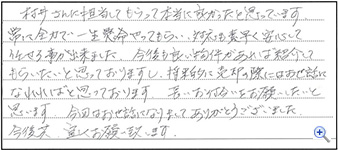 村井さんに担当してもらって本当に良かったと思っています
常に全力で一生懸命やってもらい、対応も素早く安心して
任せる事が出来ました。今後も良い物件があれば紹介して
もらいたいと思っておりますし、将来的に売却の際にはお世話に
なれればと思っております。長いお付合いをお願いしたいと
思います。今回はお世話になりましてありがとうございました。
今後共、宜しくお願い致します。